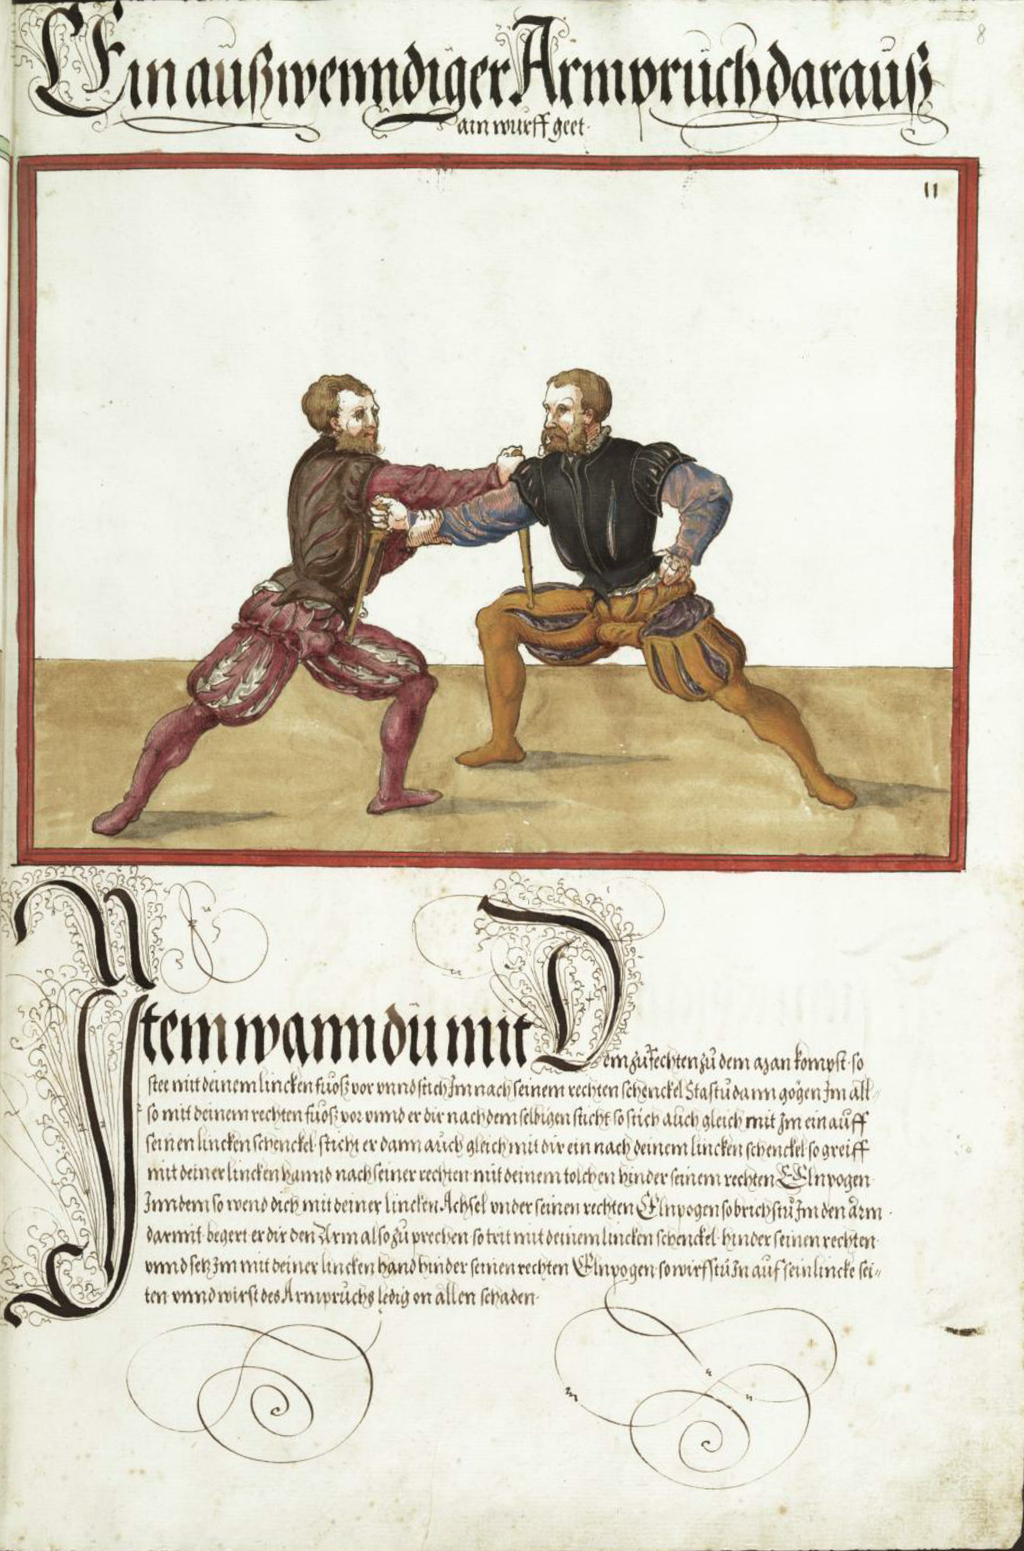 8
Ein außwenndiger Armprüch darauß
ain wurff geet.
11
Item wann dü mit Dem zu fechten zü dem man kompst so
stee mit deinem lincken füosz vor vnnd stich Im nach seinem rechten schenckel Stastu dann gögen Im all-
so mit deinem rechten füosz vor vnnd er dir nach dem selbigen sticht so stich auch gleich mit Im ein auff
seinen lincken schenckel sticht er dann auch gleich mit dir ein nach deinem lincken schenckel so greiff
mit deiner lincken hannd nach seiner rechten mit deinem tolchen hinder seinem rechten Elnpogen
Inn dem so wend dich mit deiner lincken Achsel vnder seinen rechten Elnpogen so brichstu Im den arm
darmit begert er dir den Arm also zü prechen so trit mit deinem lincken schenckel hinder seinen rechten
vnnd setz Im mit deiner lincken hand hinder seinen rechten Elnpogen so wirfstu In auf sein lincke sei-
ten vnnd wirst des Armprüchs ledig on allen schaden.